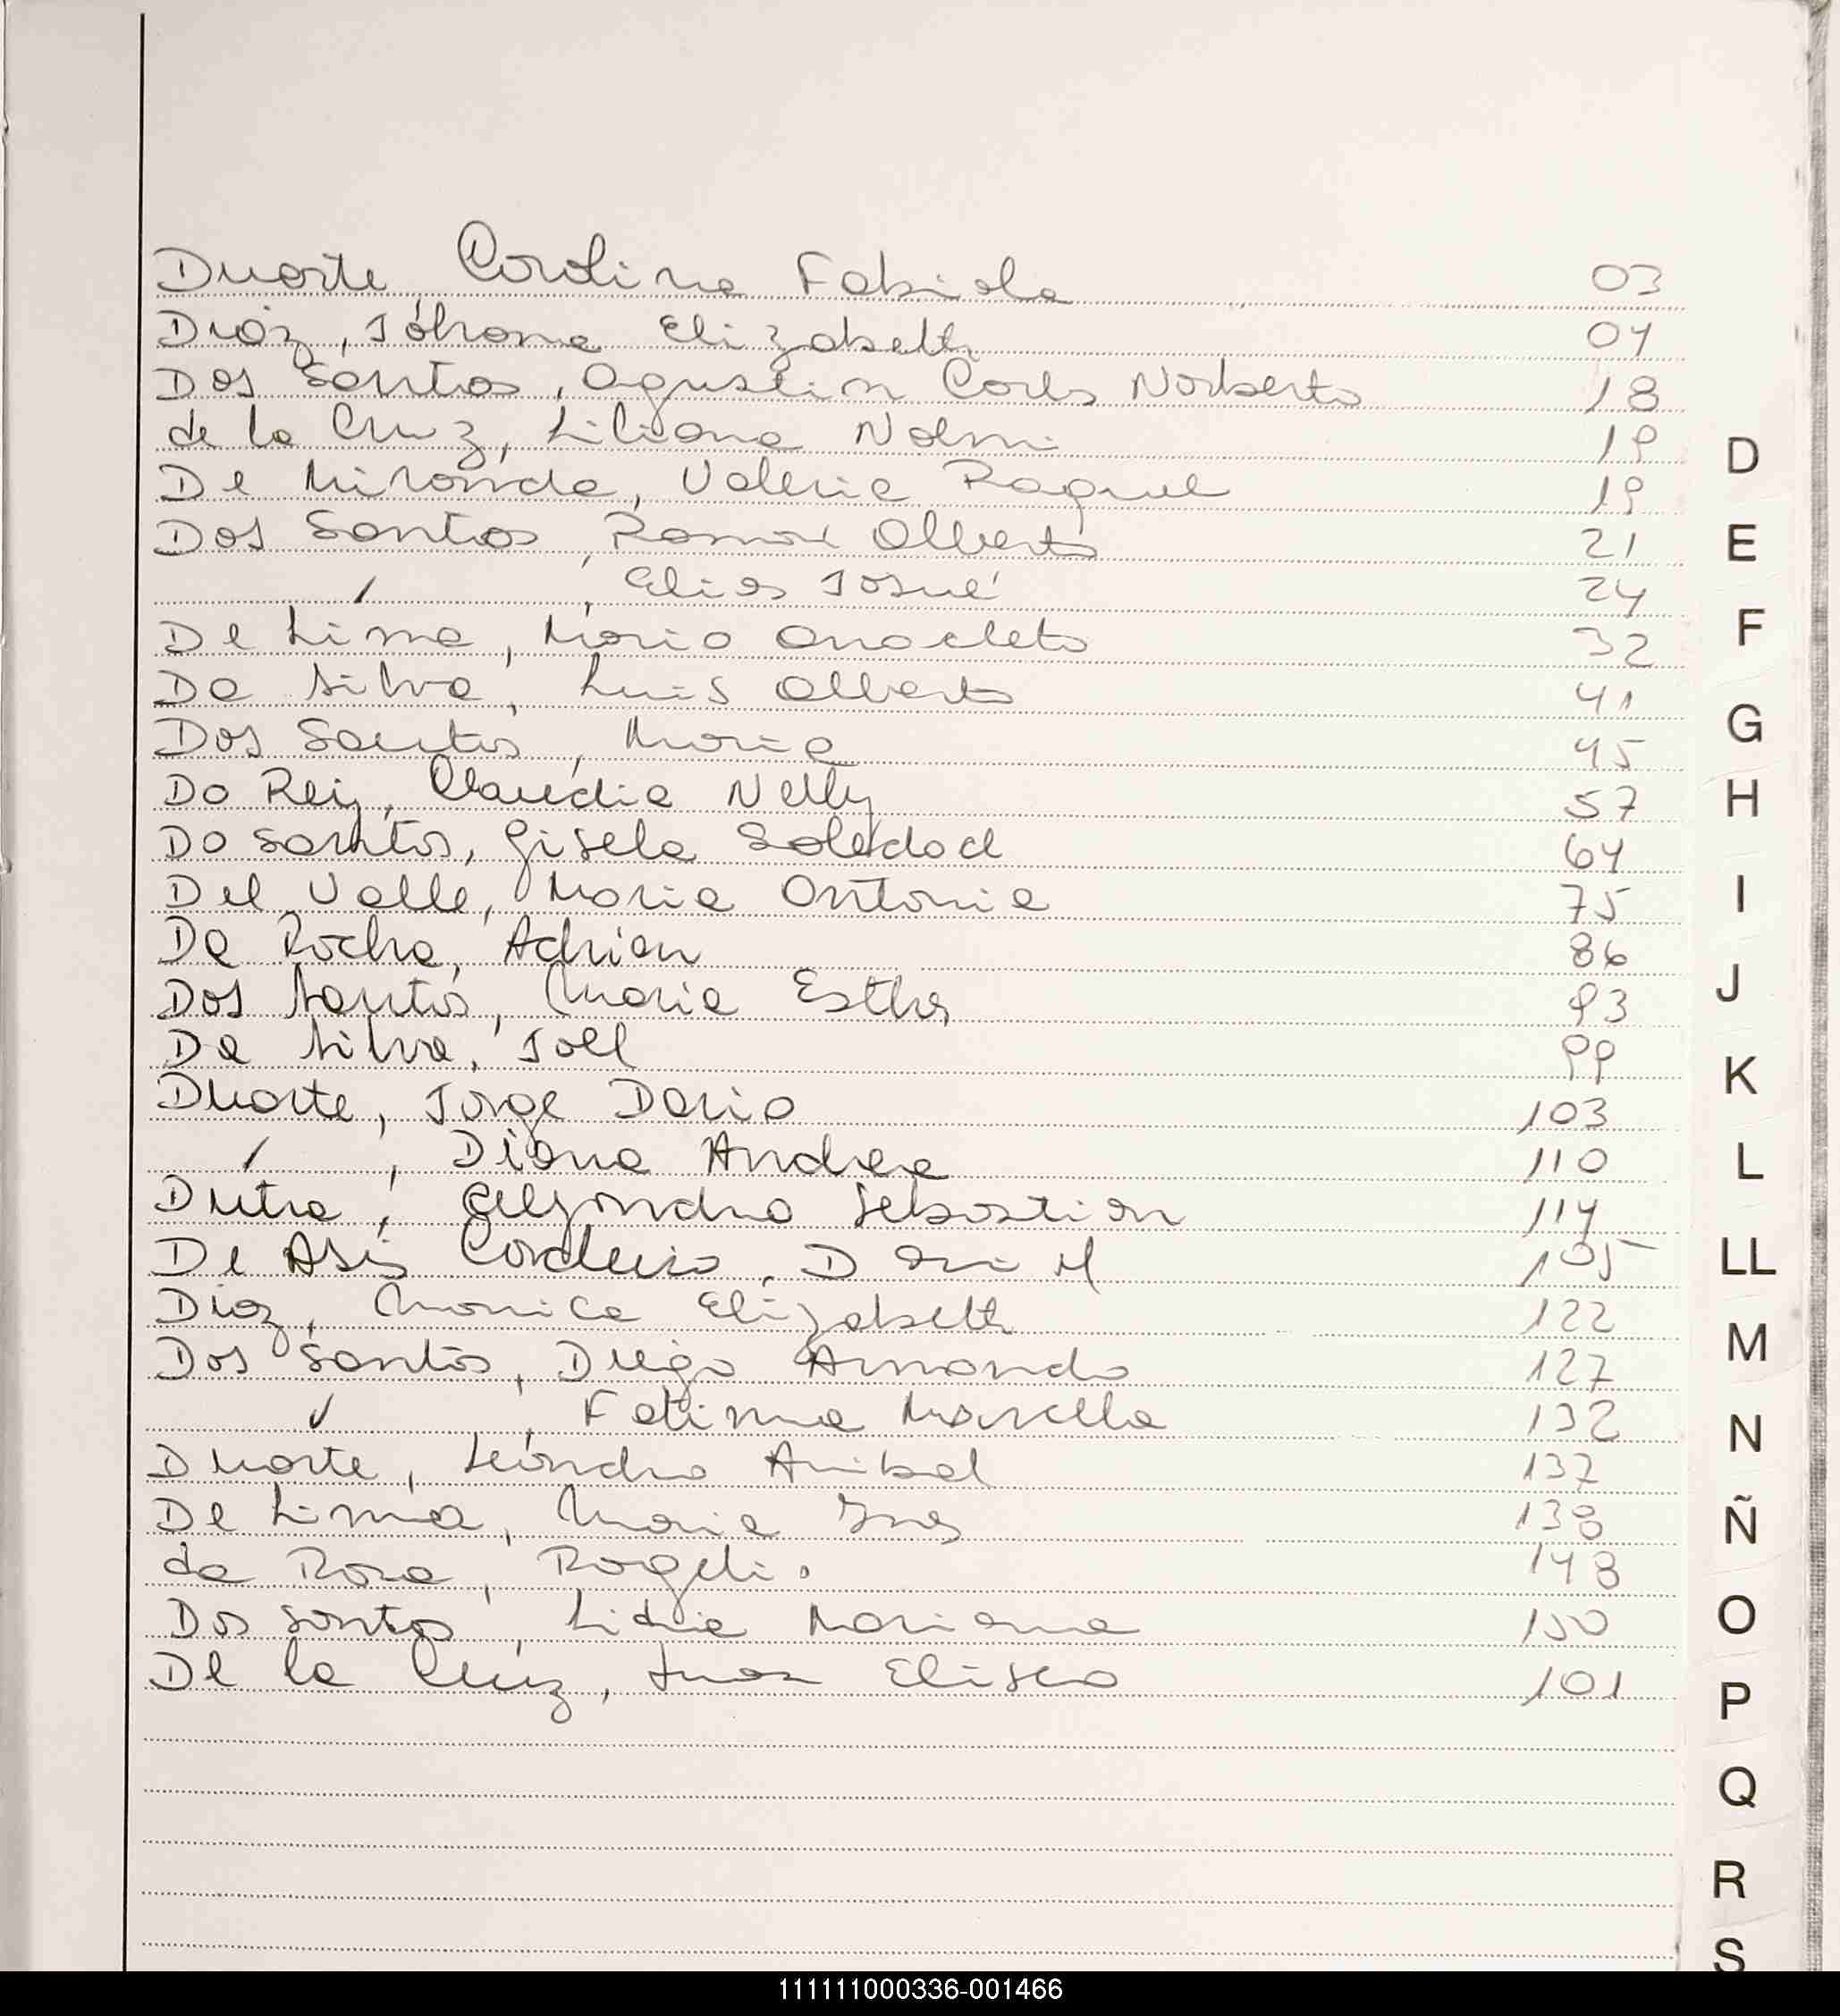 Duarte Carolina Fabiola 03
Diaz, Johana Elizabeth 04
Dos Santos, Agustin Carlos Norberto 18
de la Cruz, Liliana Noemi 19
De Miranda, Valeria Raquel 19
Dos Santos, Ramon Alberto 21
/ , Elias Josué 24
De Lima, Mario Anacleto 32
Da Silva, Luis Alberto 41
Dos Santos, Maria 45
Do Reiz, Claudia Nelly 57
Do Santos, Gisela Soledad 64
Del Valle, Maria Antonia 75
Da Rocha, Adrian 86
Dos Santos, Maria Esther 93
Da Silva, Joel 99
Duarte, Jorge Dario 103
/ , Diana Andrea 110
Dutra, Alejandro Sebastian 114
De Asis Cordeiro, D M 105
Diaz, Monica Elizabeth 122
Dos Santos, Diego Armando 127
/ , Fatima Marcella 132
Duarte, Leandro Anibal 137
De Lima, Maria Ines 138
da Rosa, Rogeli. 148
Dos Santos, Lidia Mariana 150
De la Cruz, Juan Eliseo 101
D
E
F
G
H
I
J
K
L
LL
M
N
Ñ
O
P
Q
R
S
111111000336-001466